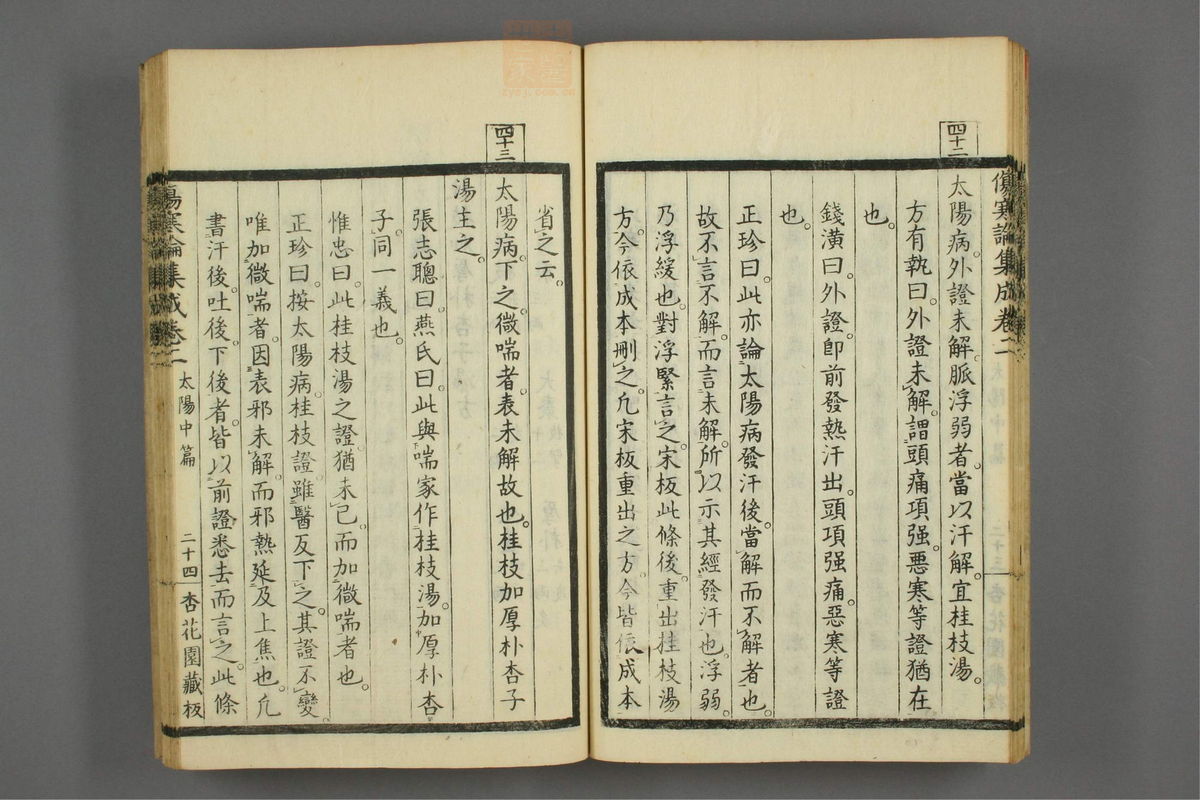 傷寒論集成卷二
四十二
太陽病。外證未解。脈浮弱者。當以汗解。宜桂枝湯。
方有執曰。外證未解。謂頭痛項强。惡寒等證猶在
也。
錢潢曰。外證。卽前發熱汗出。頭項强痛。惡寒等證
也。
正珍曰。此亦論太陽病發汗後。當解而不解者也。
故不言不解。而言未解。所以示其經發汗也。浮弱。
乃浮緩也。對浮緊言之。宋板此條後。重出桂枝湯
方。今依成本刪之。凡宋板重出之方。今皆依成本
省之云。
四十三
太陽病。下之。微喘者。表未解故也。桂枝加厚朴杏子
湯主之。
張志聰曰。燕氏曰。此與喘家作桂枝湯。加厚朴杏
子。同一義也。
惟忠曰。此桂枝湯之證猶未已。而加微喘者也。
正珍曰。按太陽病。桂枝證。雖醫反下之。其證不變。
唯加微喘者。因表邪未解。而邪熱延及上焦也。凡
書汗後。吐後。下後者。皆以前證悉去而言之。此條
傷寒論集成卷二 太陽中篇 二十四 杏花園藏板